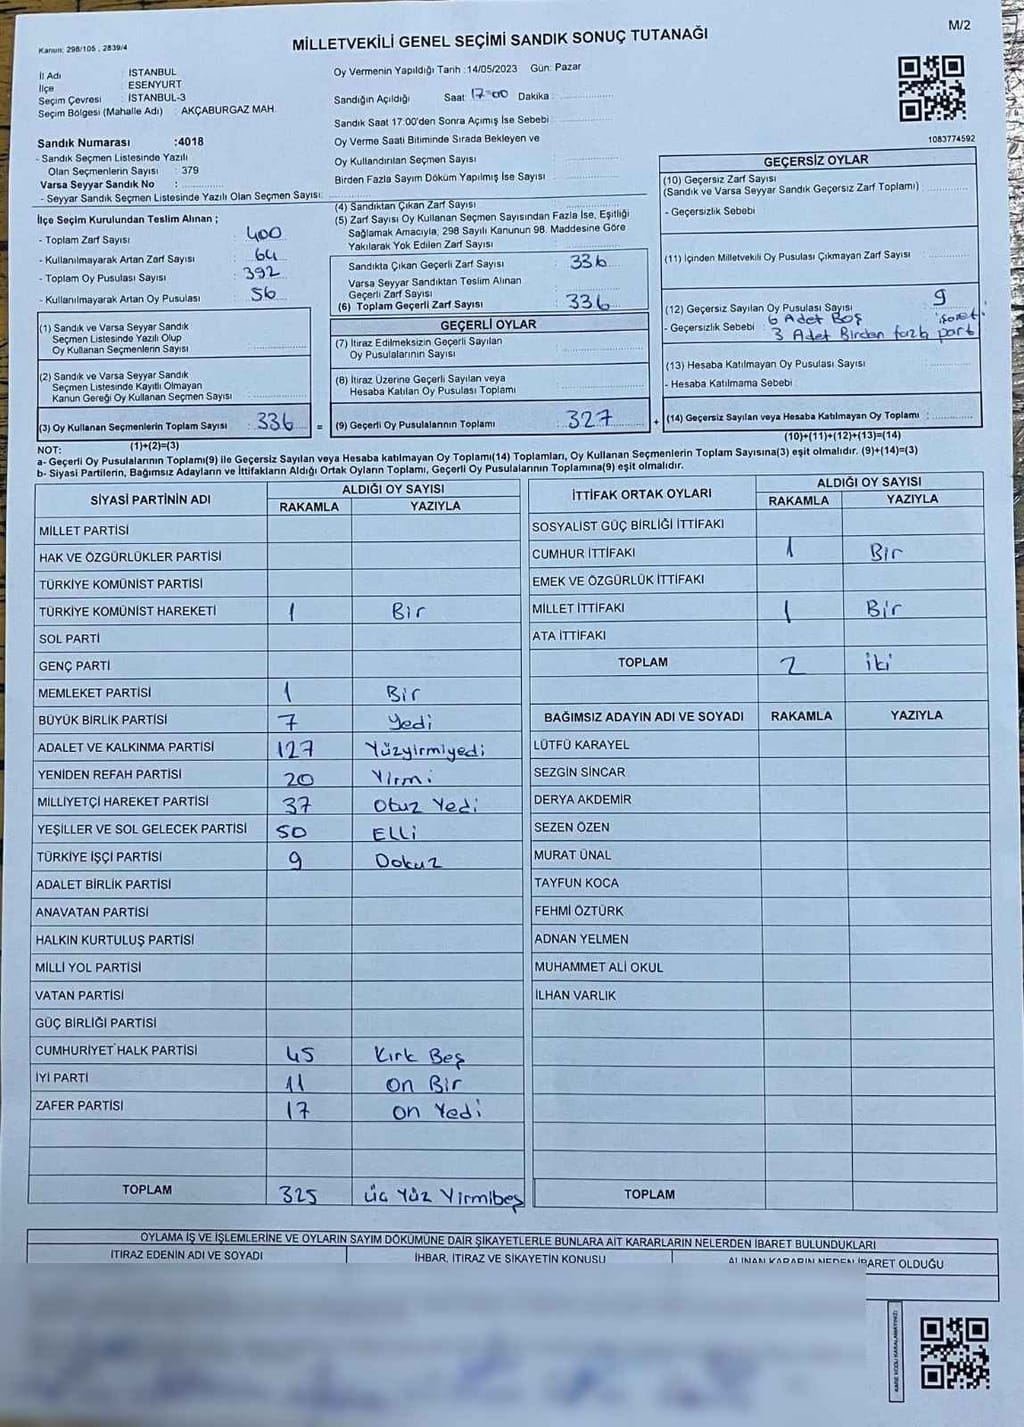 M/2
Kanun: 298/105 , 2839/4
MİLLETVEKİLİ GENEL SEÇİMİ SANDIK SONUÇ TUTANAĞI
İl Adı : İSTANBUL
İlçe : ESENYURT
Seçim Çevresi : İSTANBUL-3
Seçim Bölgesi (Mahalle Adı) : AKÇABURGAZ MAH.
Sandık Numarası :4018
- Sandık Seçmen Listesinde Yazılı
Olan Seçmenlerin Sayısı : 379
Varsa Seyyar Sandık No :
- Seyyar Sandık Seçmen Listesinde Yazılı Olan Seçmen Sayısı:
İlçe Seçim Kurulundan Teslim Alınan ;
- Toplam Zarf Sayısı : 400
- Kullanılmayarak Artan Zarf Sayısı : 64
- Toplam Oy Pusulası Sayısı : 392
- Kullanılmayarak Artan Oy Pusulası : 56
(1) Sandık ve Varsa Seyyar Sandık
Seçmen Listesinde Yazılı Olup
Oy Kullanan Seçmenlerin Sayısı :
(2) Sandık ve Varsa Seyyar Sandık
Seçmen Listesinde Kayıtlı Olmayan
Kanun Gereği Oy Kullanan Seçmen Sayısı :
(3) Oy Kullanan Seçmenlerin Toplam Sayısı : 336
(1)+(2)=(3)
Oy Vermenin Yapıldığı Tarih :14/05/2023 Gün: Pazar
Sandığın Açıldığı Saat: 17:00 Dakika :
Sandık Saat 17:00'den Sonra Açımış İse Sebebi :
Oy Verme Saati Bitiminde Sırada Bekleyen ve
Oy Kullandırılan Seçmen Sayısı :
Birden Fazla Sayım Döküm Yapılmış İse Sayısı :
(4) Sandıktan Çıkan Zarf Sayısı :
(5) Zarf Sayısı Oy Kullanan Seçmen Sayısından Fazla İse, Eşitliği
Sağlamak Amacıyla; 298 Sayılı Kanunun 98. Maddesine Göre
Yakılarak Yok Edilen Zarf Sayısı :
Sandıkta Çıkan Geçerli Zarf Sayısı : 336
Varsa Seyyar Sandıktan Teslim Alınan
Geçerli Zarf Sayısı :
(6) Toplam Geçerli Zarf Sayısı : 336
GEÇERLİ OYLAR
(7) İtiraz Edilmeksizin Geçerli Sayılan
Oy Pusulalarının Sayısı :
(8) İtiraz Üzerine Geçerli Sayılan veya
Hesaba Katılan Oy Pusulası Toplamı :
= (9) Geçerli Oy Pusulalarının Toplamı : 327 +
1083774592
GEÇERSİZ OYLAR
(10) Geçersiz Zarf Sayısı
(Sandık ve Varsa Seyyar Sandık Geçersiz Zarf Toplamı) :
- Geçersizlik Sebebi :
(11) İçinden Milletvekili Oy Pusulası Çıkmayan Zarf Sayısı :
(12) Geçersiz Sayılan Oy Pusulası Sayısı : 9
- Geçersizlik Sebebi : 6 Adet Boş
3 Adet Birden fazla parti
(13) Hesaba Katılmayan Oy Pusulası Sayısı :
- Hesaba Katılmama Sebebi :
(14) Geçersiz Sayılan veya Hesaba Katılmayan Oy Toplamı :
(10)+(11)+(12)+(13)=(14)
NOT:
a- Geçerli Oy Pusulalarının Toplamı(9) ile Geçersiz Sayılan veya Hesaba katılmayan Oy Toplamı(14) Toplamları, Oy Kullanan Seçmenlerin Toplam Sayısına(3) eşit olmalıdır. (9)+(14)=(3)
b- Siyasi Partilerin, Bağımsız Adayların ve İttifakların Aldığı Ortak Oyların Toplamı, Geçerli Oy Pusulalarının Toplamına(9) eşit olmalıdır.
SİYASİ PARTİNİN ADI ALDIĞI OY SAYISI
RAKAMLA YAZIYLA
MİLLET PARTİSİ
HAK VE ÖZGÜRLÜKLER PARTİSİ
TÜRKİYE KOMÜNİST PARTİSİ
TÜRKİYE KOMÜNİST HAREKETİ 1 Bir
SOL PARTİ
GENÇ PARTİ
MEMLEKET PARTİSİ 1 Bir
BÜYÜK BİRLİK PARTİSİ 7 Yedi
ADALET VE KALKINMA PARTİSİ 127 Yüzyirmiyedi
YENİDEN REFAH PARTİSİ 20 Yirmi
MİLLİYETÇİ HAREKET PARTİSİ 37 Otuz Yedi
YEŞİLLER VE SOL GELECEK PARTİSİ 50 Elli
TÜRKİYE İŞÇİ PARTİSİ 9 Dokuz
ADALET BİRLİK PARTİSİ
ANAVATAN PARTİSİ
HALKIN KURTULUŞ PARTİSİ
MİLLİ YOL PARTİSİ
VATAN PARTİSİ
GÜÇ BİRLİĞİ PARTİSİ
CUMHURİYET HALK PARTİSİ 45 Kırk Beş
İYİ PARTİ 11 On Bir
ZAFER PARTİSİ 17 on Yedi
TOPLAM 325 üç Yüz Yirmibeş
İTTİFAK ORTAK OYLARI ALDIĞI OY SAYISI
RAKAMLA YAZIYLA
SOSYALİST GÜÇ BİRLİĞİ İTTİFAKI
CUMHUR İTTİFAKI 1 Bir
EMEK VE ÖZGÜRLÜK İTTİFAKI
MİLLET İTTİFAKI 1 Bir
ATA İTTİFAKI
TOPLAM 2 iki
BAĞIMSIZ ADAYIN ADI VE SOYADI RAKAMLA YAZIYLA
LÜTFÜ KARAYEL
SEZGİN SİNCAR
DERYA AKDEMİR
SEZEN ÖZEN
MURAT ÜNAL
TAYFUN KOCA
FEHMİ ÖZTÜRK
ADNAN YELMEN
MUHAMMET ALİ OKUL
İLHAN VARLIK
TOPLAM
OYLAMA İŞ VE İŞLEMLERİNE VE OYLARIN SAYIM DÖKÜMÜNE DAİR ŞİKAYETLERLE BUNLARA AİT KARARLARIN NELERDEN İBARET BULUNDUKLARI
İTİRAZ EDENİN ADI VE SOYADI İHBAR, İTİRAZ VE ŞİKAYETİN KONUSU ALINAN KARARIN NEDEN İBARET OLDUĞU